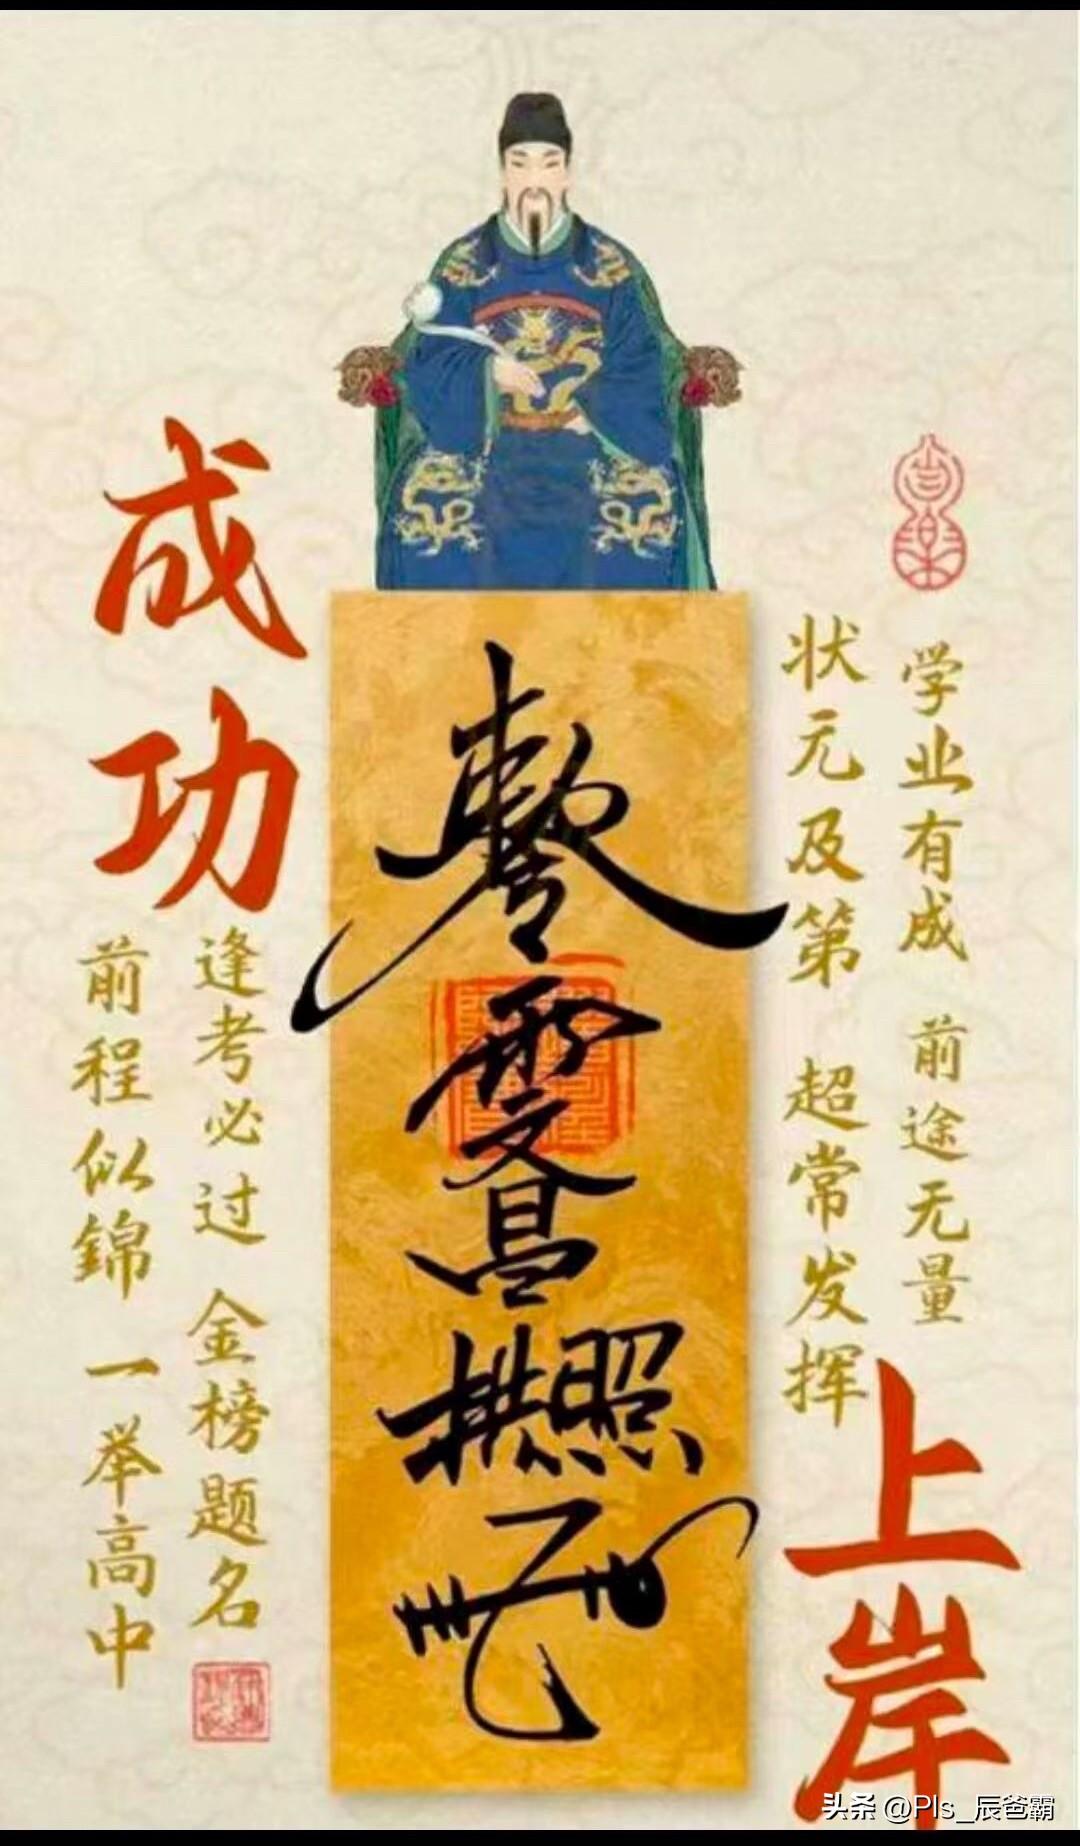 学业有成 前途无量
状元及第 超常发挥
上岸
成功
逢考必过 金榜题名
前程似錦 一举高中
文昌
拱照
头条 @Pls_辰爸霸